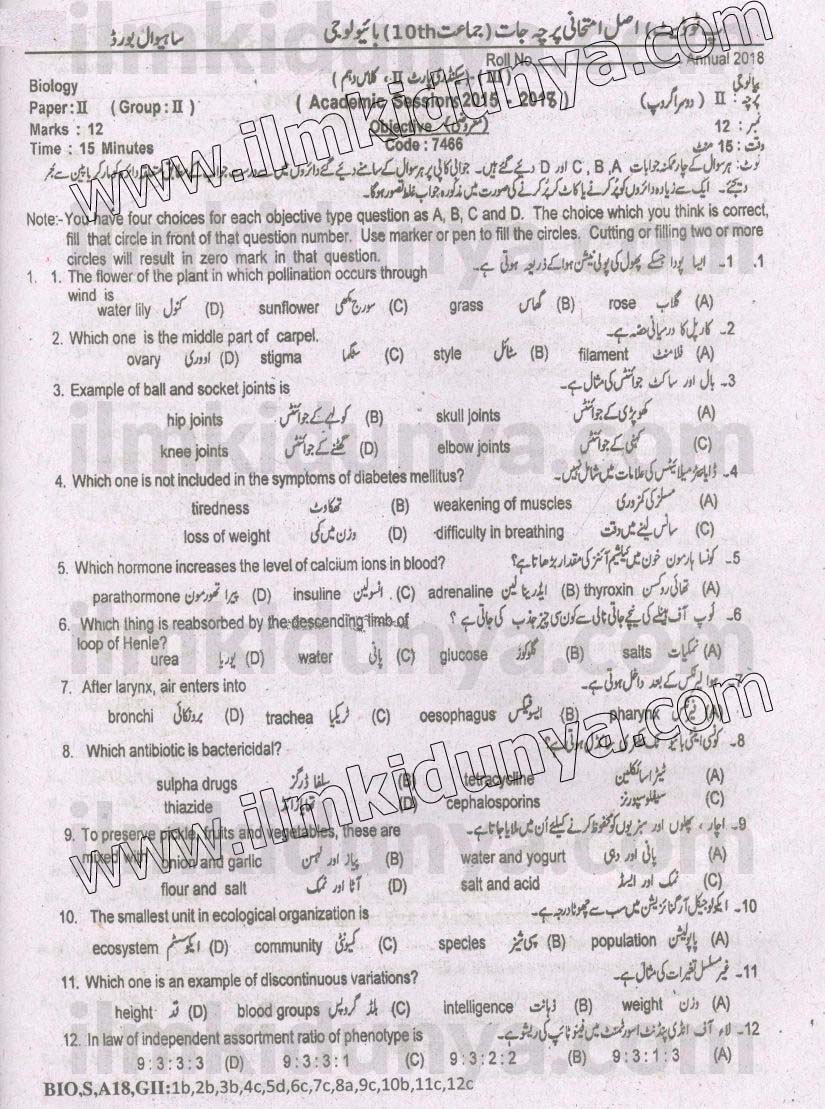 ساہیوال بورڈ اصل امتحانی پرچہ جات (جماعت 10th) بائیولوجی
Roll No Annual 2018
Biology (سیکنڈری پارٹ II، کلاس دہم - III) بیالوجی
Paper: II ( Group: II ) ( Academic Sessions 2015 - 2018 ) پرچہ : II (دوسرا گروپ)
Marks : 12 Objective (معروضی) نمبر : 12
Time : 15 Minutes Code : 7466 وقت : 15 منٹ
نوٹ: ہر سوال کے چار ممکنہ جوابات A, B, C اور D دیئے گئے ہیں۔ جوابی کاپی پر ہر سوال کے سامنے دیئے گئے دائروں میں سے درست جواب کے مطابق متعلقہ دائرہ کو مارکر یا پین سے بھر
دیجئے۔ ایک سے زیادہ دائروں کو پُر کرنے یا کاٹ کر پُر کرنے کی صورت میں مذکورہ جواب غلط تصور ہو گا۔
Note:- You have four choices for each objective type question as A, B, C and D. The choice which you think is correct,
fill that circle in front of that question number. Use marker or pen to fill the circles. Cutting or filling two or more
circles will result in zero mark in that question.
1. 1. The flower of the plant in which pollination occurs through 1. 1۔ ایسا پودا جسکے پھول کی پولی نیشن ہوا کے ذریعہ ہوتی ہے۔
wind is
water lily کنول (D) sunflower سورج مکھی (C) grass گھاس (B) rose گلاب (A)
2. Which one is the middle part of carpel. 2۔ کارپل کا درمیانی حصہ ہے۔
ovary اووری (D) stigma سٹگما (C) style سٹائل (B) filament فلامنٹ (A)
3. Example of ball and socket joints is 3۔ بال اور ساکٹ جوائنٹس کی مثال ہے۔
hip joints کولہے کے جوائنٹس (B) skull joints کھوپڑی کے جوائنٹس (A)
knee joints گھٹنے کے جوائنٹس (D) elbow joints کہنی کے جوائنٹس (C)
4. Which one is not included in the symptoms of diabetes mellitus? 4۔ ڈایابیٹیز میلائیٹس کی علامات میں شامل نہیں۔
tiredness تھکاوٹ (B) weakening of muscles مسلز کی کمزوری (A)
loss of weight وزن میں کمی (D) difficulty in breathing سانس لینے میں دقت (C)
5. Which hormone increases the level of calcium ions in blood? 5۔ کونسا ہارمون خون میں کیلشیم آئنز کی مقدار بڑھاتا ہے؟
parathormone پیراتھورمون (D) insuline انسولین (C) adrenaline ایڈرینالین (B) thyroxin تھائی روکسن (A)
6. Which thing is reabsorbed by the descending limb of 6۔ لوپ آف ہینلے کی نیچے جاتی نالی سے کون سی چیز جذب کی جاتی ہے؟
loop of Henle?
urea یوریا (D) water پانی (C) glucose گلوکوز (B) salts نمکیات (A)
7. After larynx, air enters into 7۔ ہوا لیرنکس کے بعد داخل ہوتی ہے۔
bronchi برونکائی (D) trachea ٹریکیا (C) oesophagus ایسوفیگس (B) pharynx فیرنکس (A)
8. Which antibiotic is bactericidal? 8۔ کونسی اینٹی بائیوٹک بیکٹیری سائیڈل ہوتی ہے؟
sulpha drugs سلفا ڈرگز (B) tetracycline ٹیٹراسائکلین (A)
thiazide تھایازائڈ (D) cephalosporins سیفالوسپورنز (C)
9. To preserve pickle, fruits and vegetables, these are 9۔ اچار، پھلوں اور سبزیوں کو محفوظ کرنے کیلئے اُن میں ملایا جاتا ہے۔
mixed with onion and garlic پیاز اور لہسن (B) water and yogurt پانی اور دہی (A)
flour and salt آٹا اور نمک (D) salt and acid نمک اور ایسڈ (C)
10. The smallest unit in ecological organization is 10۔ ایکولوجیکل آرگنائزیشن میں سب سے چھوٹا درجہ ہے۔
ecosystem ایکوسسٹم (D) community کمیونٹی (C) species سپی شیز (B) population پاپولیشن (A)
11. Which one is an example of discontinuous variations? 11۔ غیر مسلسل تغیرات کی مثال ہے۔
height قد (D) blood groups بلڈ گروپس (C) intelligence ذہانت (B) weight وزن (A)
12. In law of independent assortment ratio of phenotype is 12۔ لاء آف انڈی پنڈنٹ اسورٹمنٹ میں فینوٹائپ کی ریشو ہے۔
9 : 3 : 3 : 3 (D) 9 : 3 : 3 : 1 (C) 9 : 3 : 2 : 2 (B) 9 : 3 : 1 : 3 (A)
BIO,S,A18,GII:1b,2b,3b,4c,5d,6c,7c,8a,9c,10b,11c,12c
www.ilmkidunya.com
www.ilmkidunya.com
ilmkidunya.com
ilmkidunya.com
ilmkidunya.com
ilmkidunya.com
ilmkidunya.com